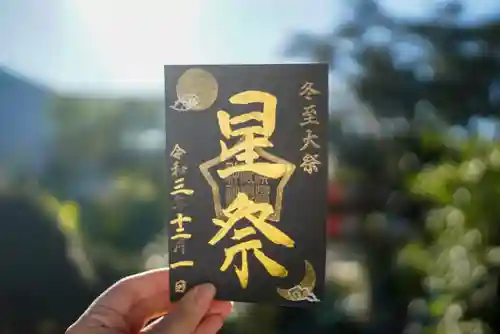 冬至大祭
星祭
令和三年十二月一日